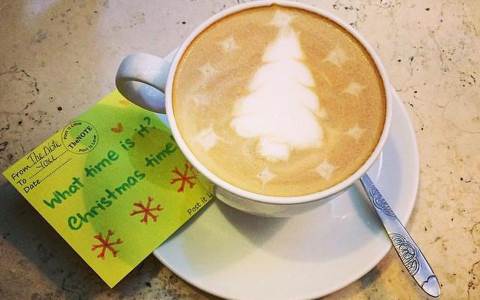 From The Note
To You!
Date
THE NOTE
What time is it?
Christmas time
Post it